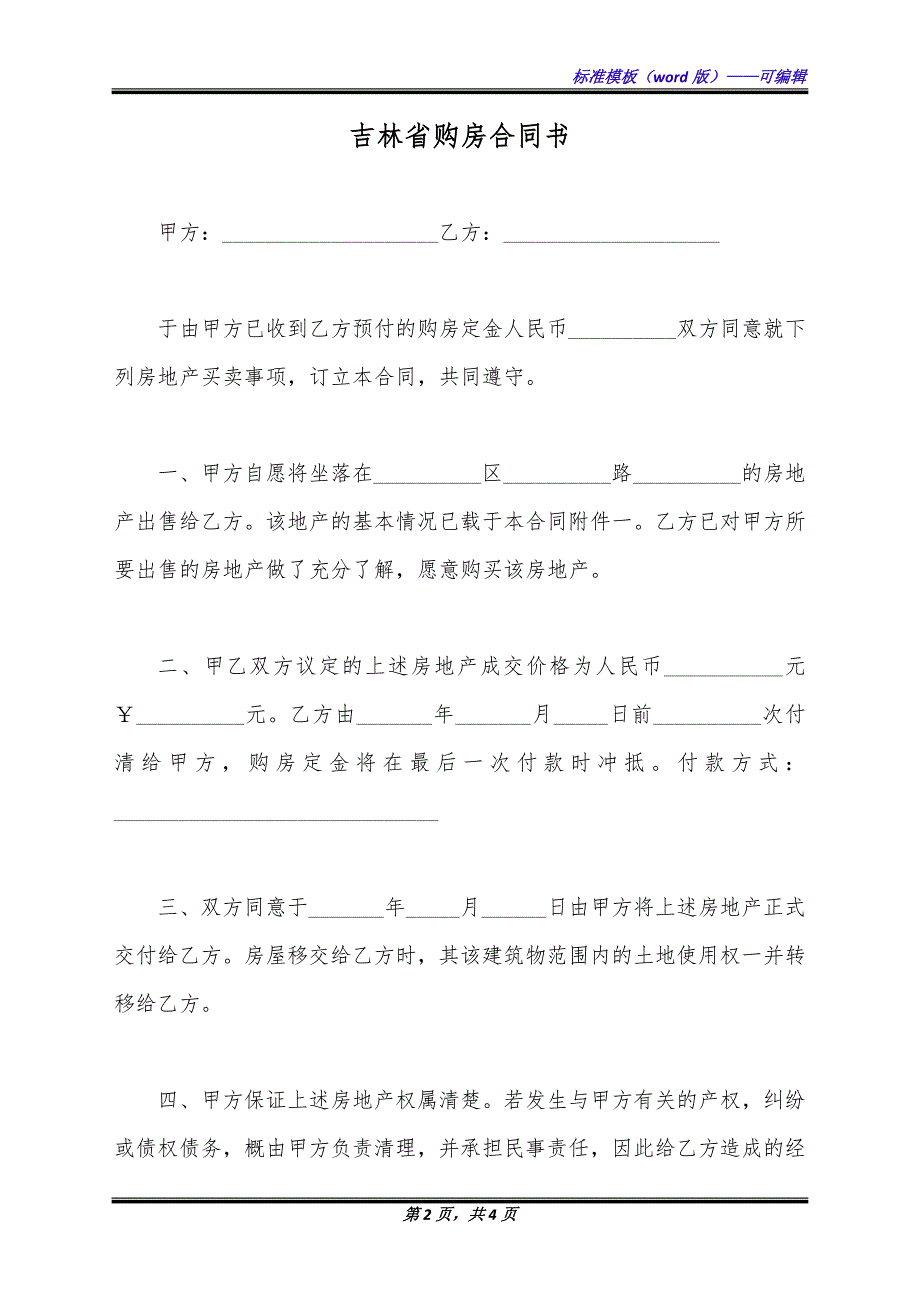 标准模板（word 版）——可编辑
吉林省购房合同书
甲方：____________________乙方：____________________
于由甲方已收到乙方预付的购房定金人民币__________双方同意就下
列房地产买卖事项，订立本合同，共同遵守。
一、甲方自愿将坐落在__________区__________路__________的房地
产出售给乙方。该地产的基本情况已载于本合同附件一。乙方已对甲方所
要出售的房地产做了充分了解，愿意购买该房地产。
二、甲乙双方议定的上述房地产成交价格为人民币___________元
￥__________元。乙方由_______年_______月_____日前__________次付
清给甲方，购房定金将在最后一次付款时冲抵。付款方式：
______________________________
三、双方同意于_______年_____月______日由甲方将上述房地产正式
交付给乙方。房屋移交给乙方时，其该建筑物范围内的土地使用权一并转
移给乙方。
四、甲方保证上述房地产权属清楚。若发生与甲方有关的产权，纠纷
或债权债务，概由甲方负责清理，并承担民事责任，因此给乙方造成的经
第 2 页，共 4 页